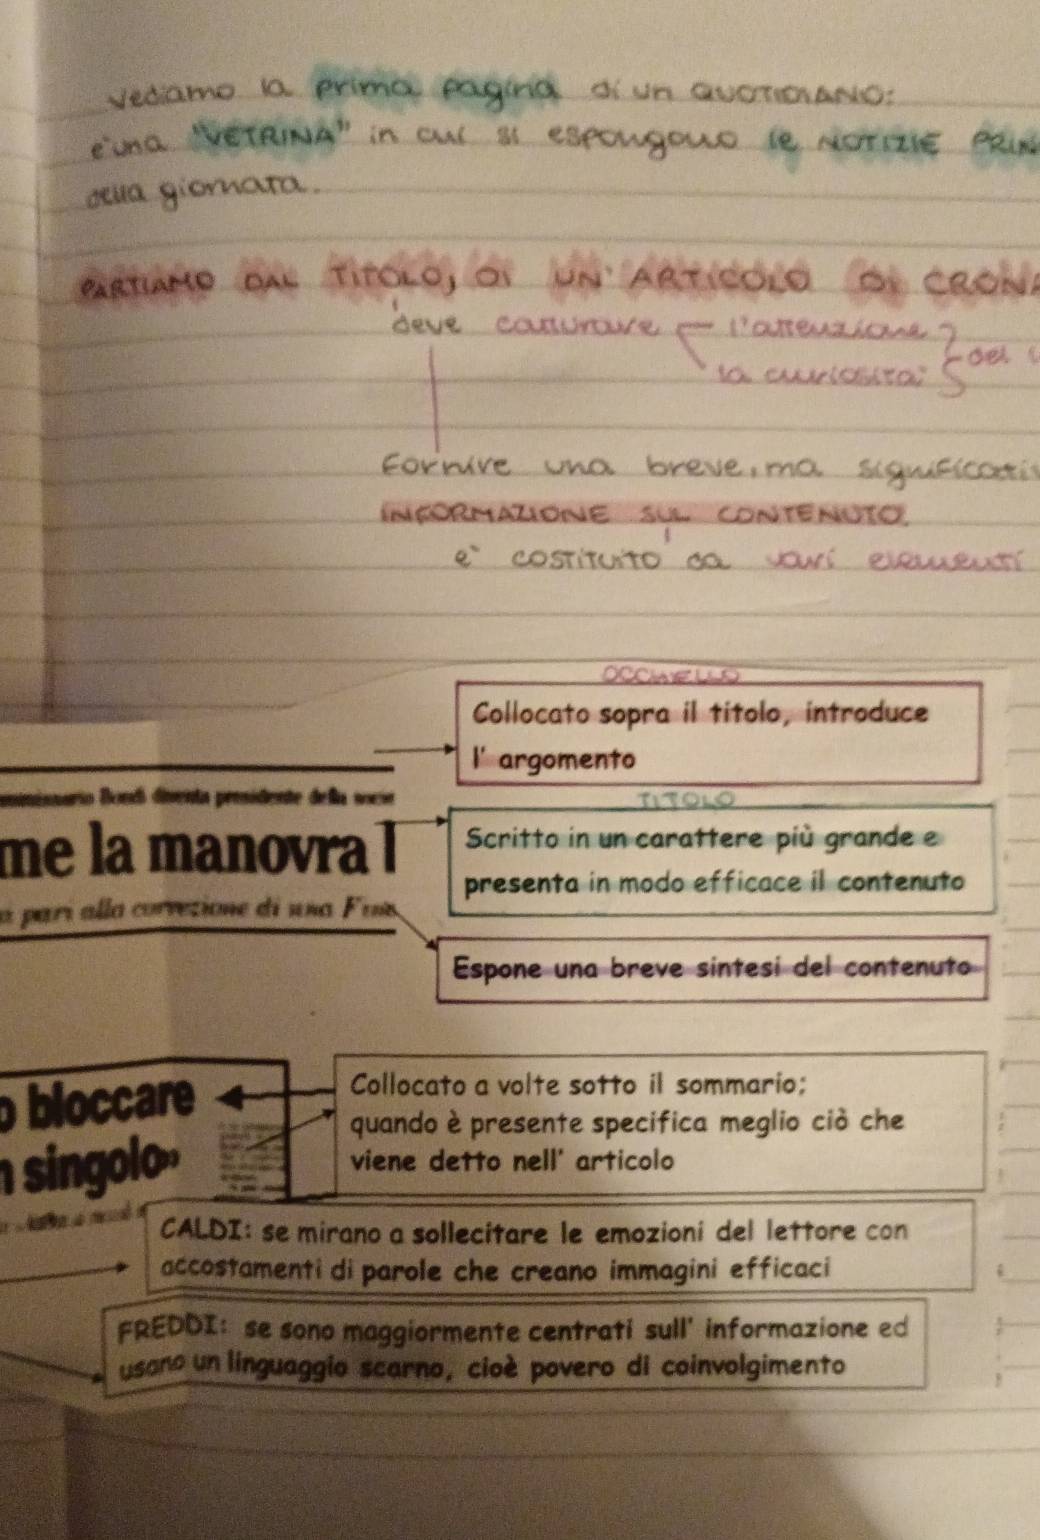 vediamo la prima pagina di un QUOTIDIANO:
è una "VETRINA" in cui si espongono le NOTIZIE PRIN
della giornata.
PARTIAMO DAL TITOLO, DI UN' ARTICOLO DI CRONA
deve catturare l'attenzione
la curiosità del
Fornire una breve, ma significati
INFORMAZIONE SUL CONTENUTO.
è COSTITUITO da vari elementi
OCCHIELLO
Collocato sopra il titolo, introduce
l' argomento
Bondi diventa presidente della
TITOLO
me la manovra
Scritto in un carattere più grande e
presenta in modo efficace il contenuto
pari alla correzione di una
Espone una breve sintesi del contenuto
o bloccare
Collocato a volte sotto il sommario;
quando è presente specifica meglio ciò che
singolo»
viene detto nell' articolo
CALDI: se mirano a sollecitare le emozioni del lettore con
accostamenti di parole che creano immagini efficaci
FREDDI: se sono maggiormente centrati sull' informazione ed
usano un linguaggio scarno, cioè povero di coinvolgimento